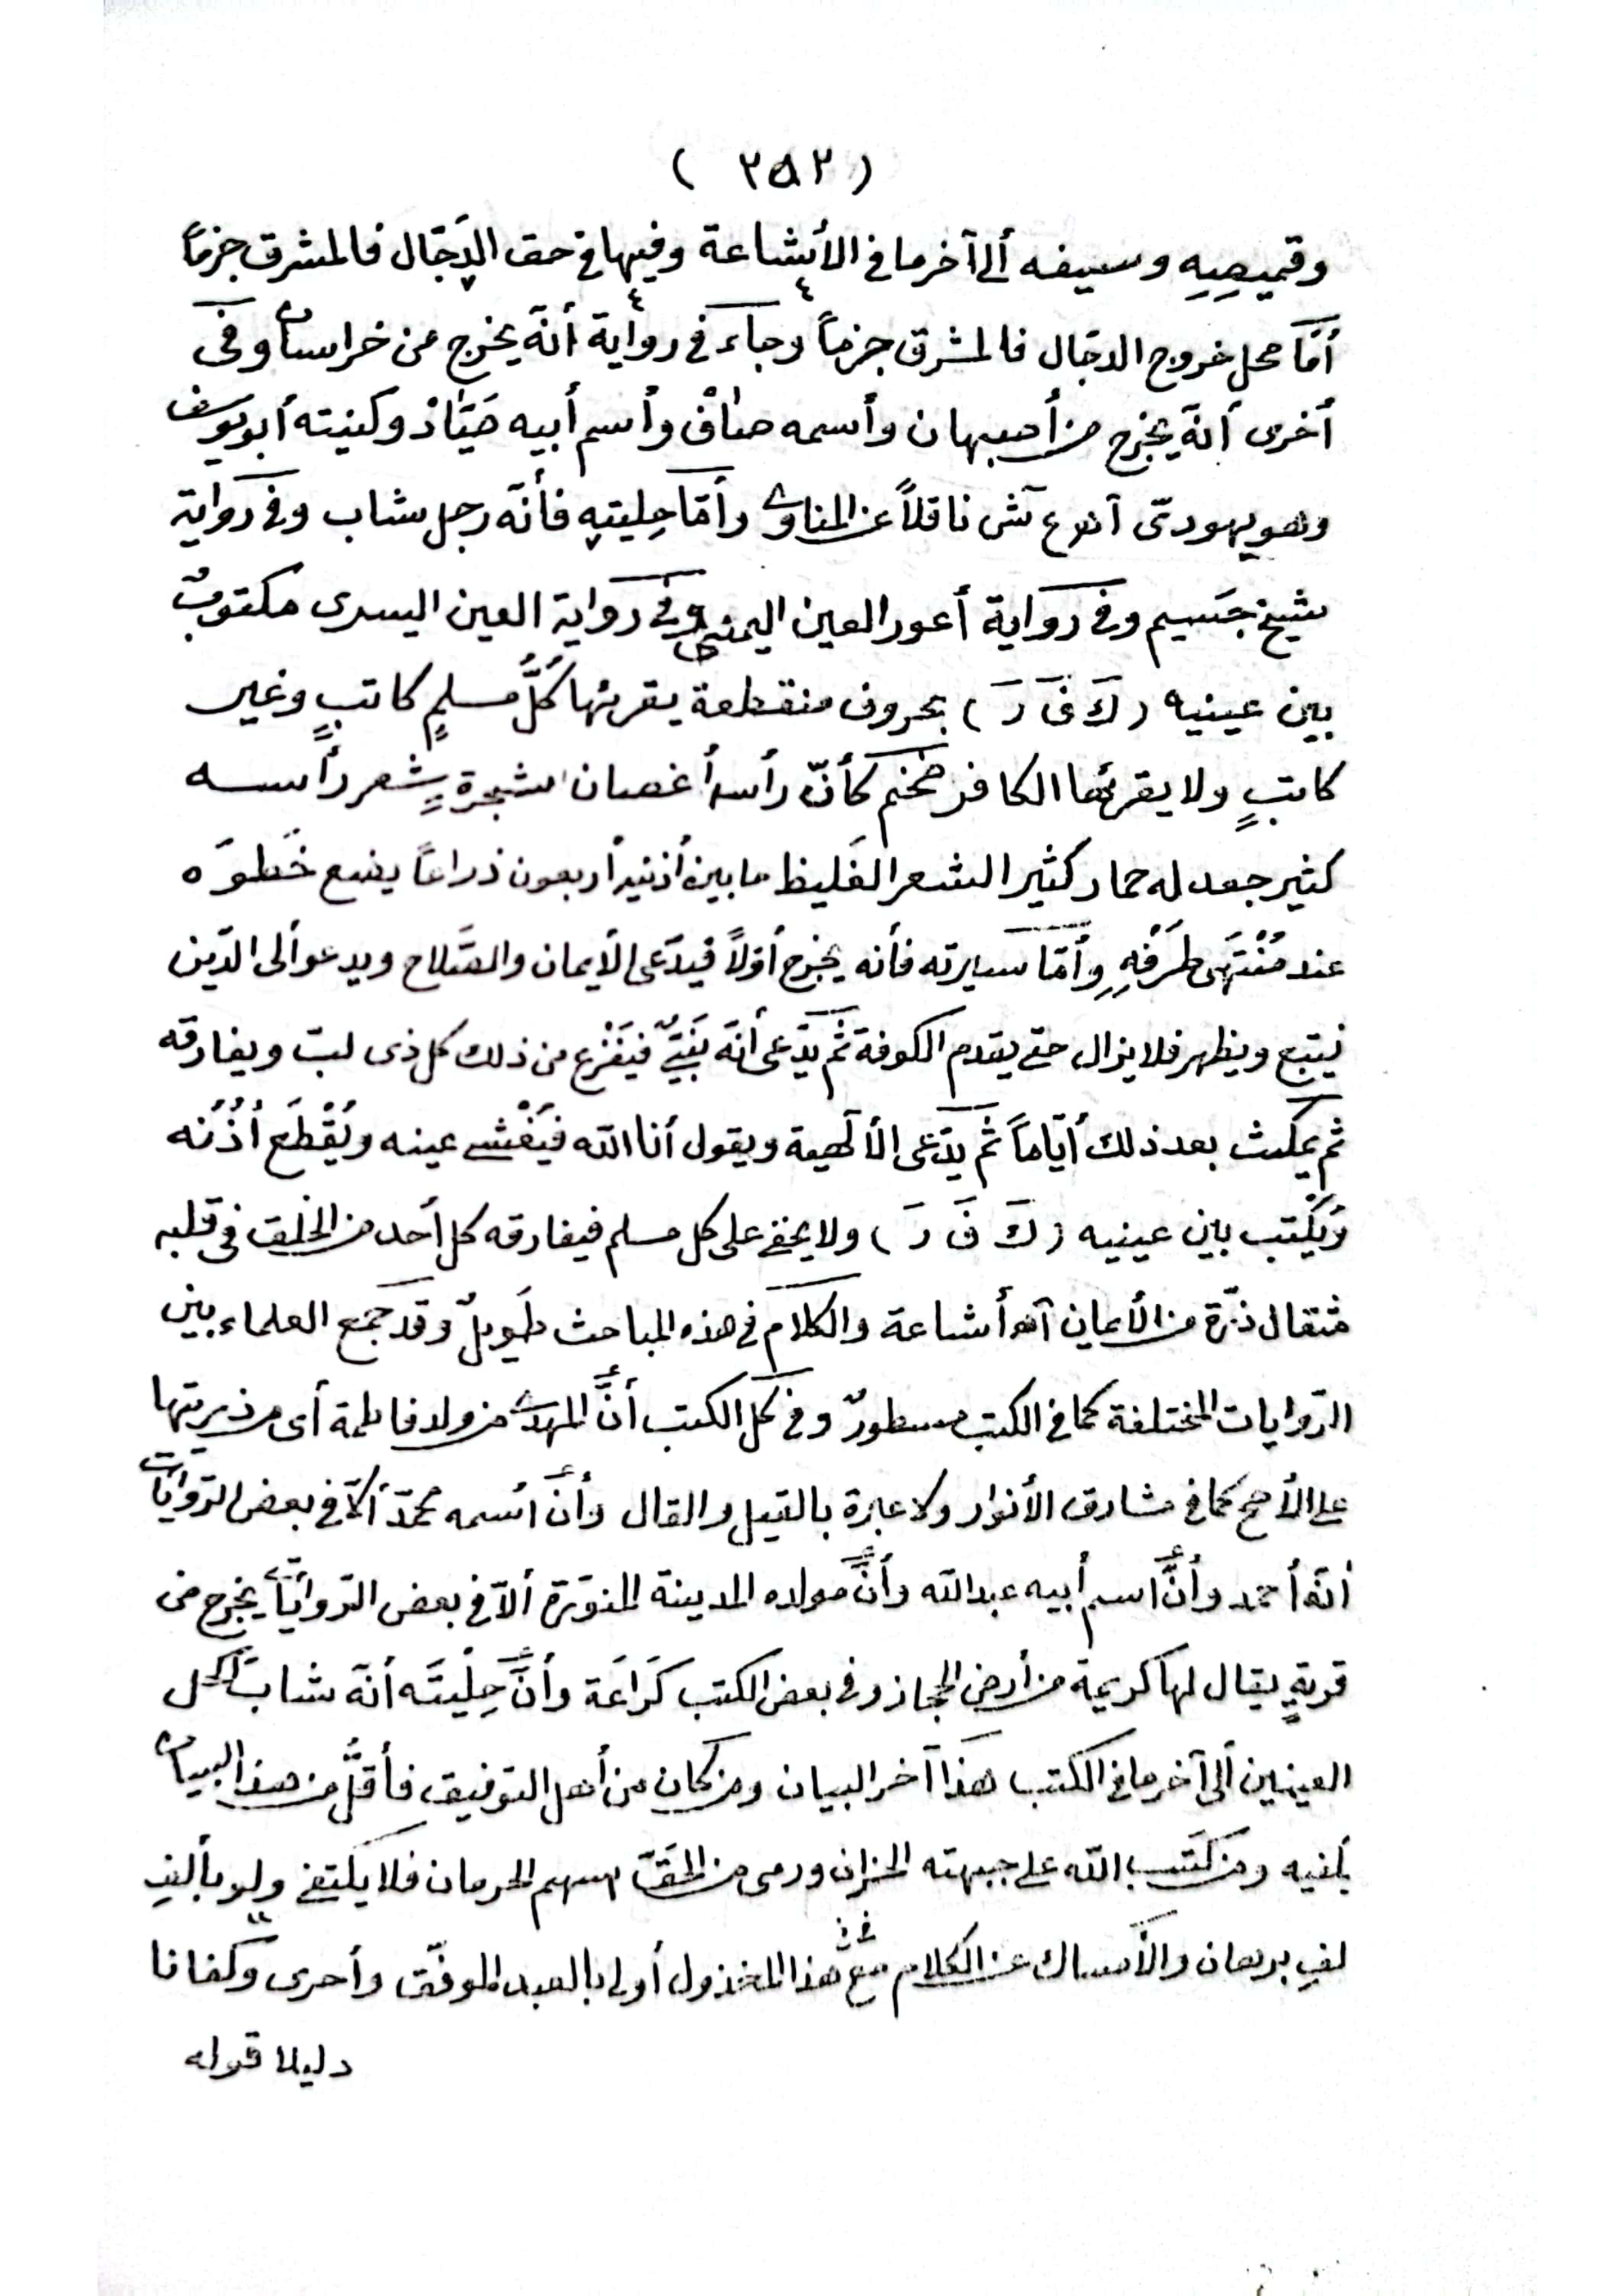 ( ٢٥٢ )
وقميصِهِ وسيفه ألى آخر ما فى الأشاعة وفيها فى حق الدَجّال فالمشرق جزماً
أمّا محل خروج الدجّال فالمشرق جزماً وجاء فى رواية أنّه يخرج من خراسان وفى
أخرى أنّه يخرج من أصبهان وأسمه صافْ وأسم أبيه صَيّادْ وكنيته أبو يوسف
وهو يهودىّ آهـ ع ش ناقلاً عن المناوى وأمّا حِليتهِ فأنّه رجل شاب وفى رواية
شيخ جسَيم وفى رواية أعور العين اليمنى وفى رواية العين اليسرى مكتوبٌ
بين عينيه (كَ فَ رَ) بحروف منقطعة يقرئها كُلُّ مسلمٍ كاتبٍ وغير
كاتبٍ ولا يقرئها الكافر ضخم كأنّ رأسه أغصان شجرةٍ شعر رأسه
كثير جعد له حمار كثير الشعر الغَليظ ما بين أذنيه أربعون ذراعاً يضع خَطوَه
عند مُنْتَهَى طَرَفْهِ وأمّا سيرته فأنه يخرج أوّلاً فيدّعى الأيمان والصّلاح ويدعو ألى الدّين
فيتبع ويظهر فلا يزال حتى يقدم الكوفة ثمّ يدّعى أنّه نَبِىٌّ فيَفْزع من ذلك كل ذى لبّ ويفارقه
ثم يمكث بعد ذلك أيّاماً ثمّ يدّعى الألهية ويقول أنا الله فيَغْشى عينه ويُقْطَع أُذُنه
ويُكْتب بين عينيه (كَ فَ رَ) ولا يخفى على كل مسلم فيفارقه كل أحد من الخلق فى قلبه
مثقال ذرّة من الأيمان آهـ أشاعة والكلام فى هذه المباحث طَويلٌ وقد جمع العلماء بين
الرّوايات المختلفة كما فى الكتب مسطورٌ وفى كل الكتب أنَّ المهدى من ولد فاطمة أى من ذريتها
على الأصح كما فى مشارق الأنوار ولا عبرة بالقيل والقال وأنّ أسمه محمّد ألاّ فى بعض الرّوايات
أنّه أحمد وأنَّ اسم أبيه عبدالله وأنَّ مولده المدينة المنوّرة ألاّ فى بعض الرّوايات يخرج من
قريةٍ يقال لها كريمة من أرض الحجاز وفى بعض الكتب كَرَاعَة وأنّ حِلْيتَه أنّه شابّ أكحل
العينين ألى آخر ما فى الكتب هذا آخر البيان ومن كان من أهل التوفيق فأقلُّ من هذا البيان
يكفيه ومن كَتَب الله على جبهته الخزان ورمى من الحَقّ بسهم الحرمان فلا يكتفى ولو بألفِ
لفِ برهان والأمساك عن الكلام مع هذا المخذول أولى بالعبد الموفّق وأحرى وكفانا
دليلا قوله